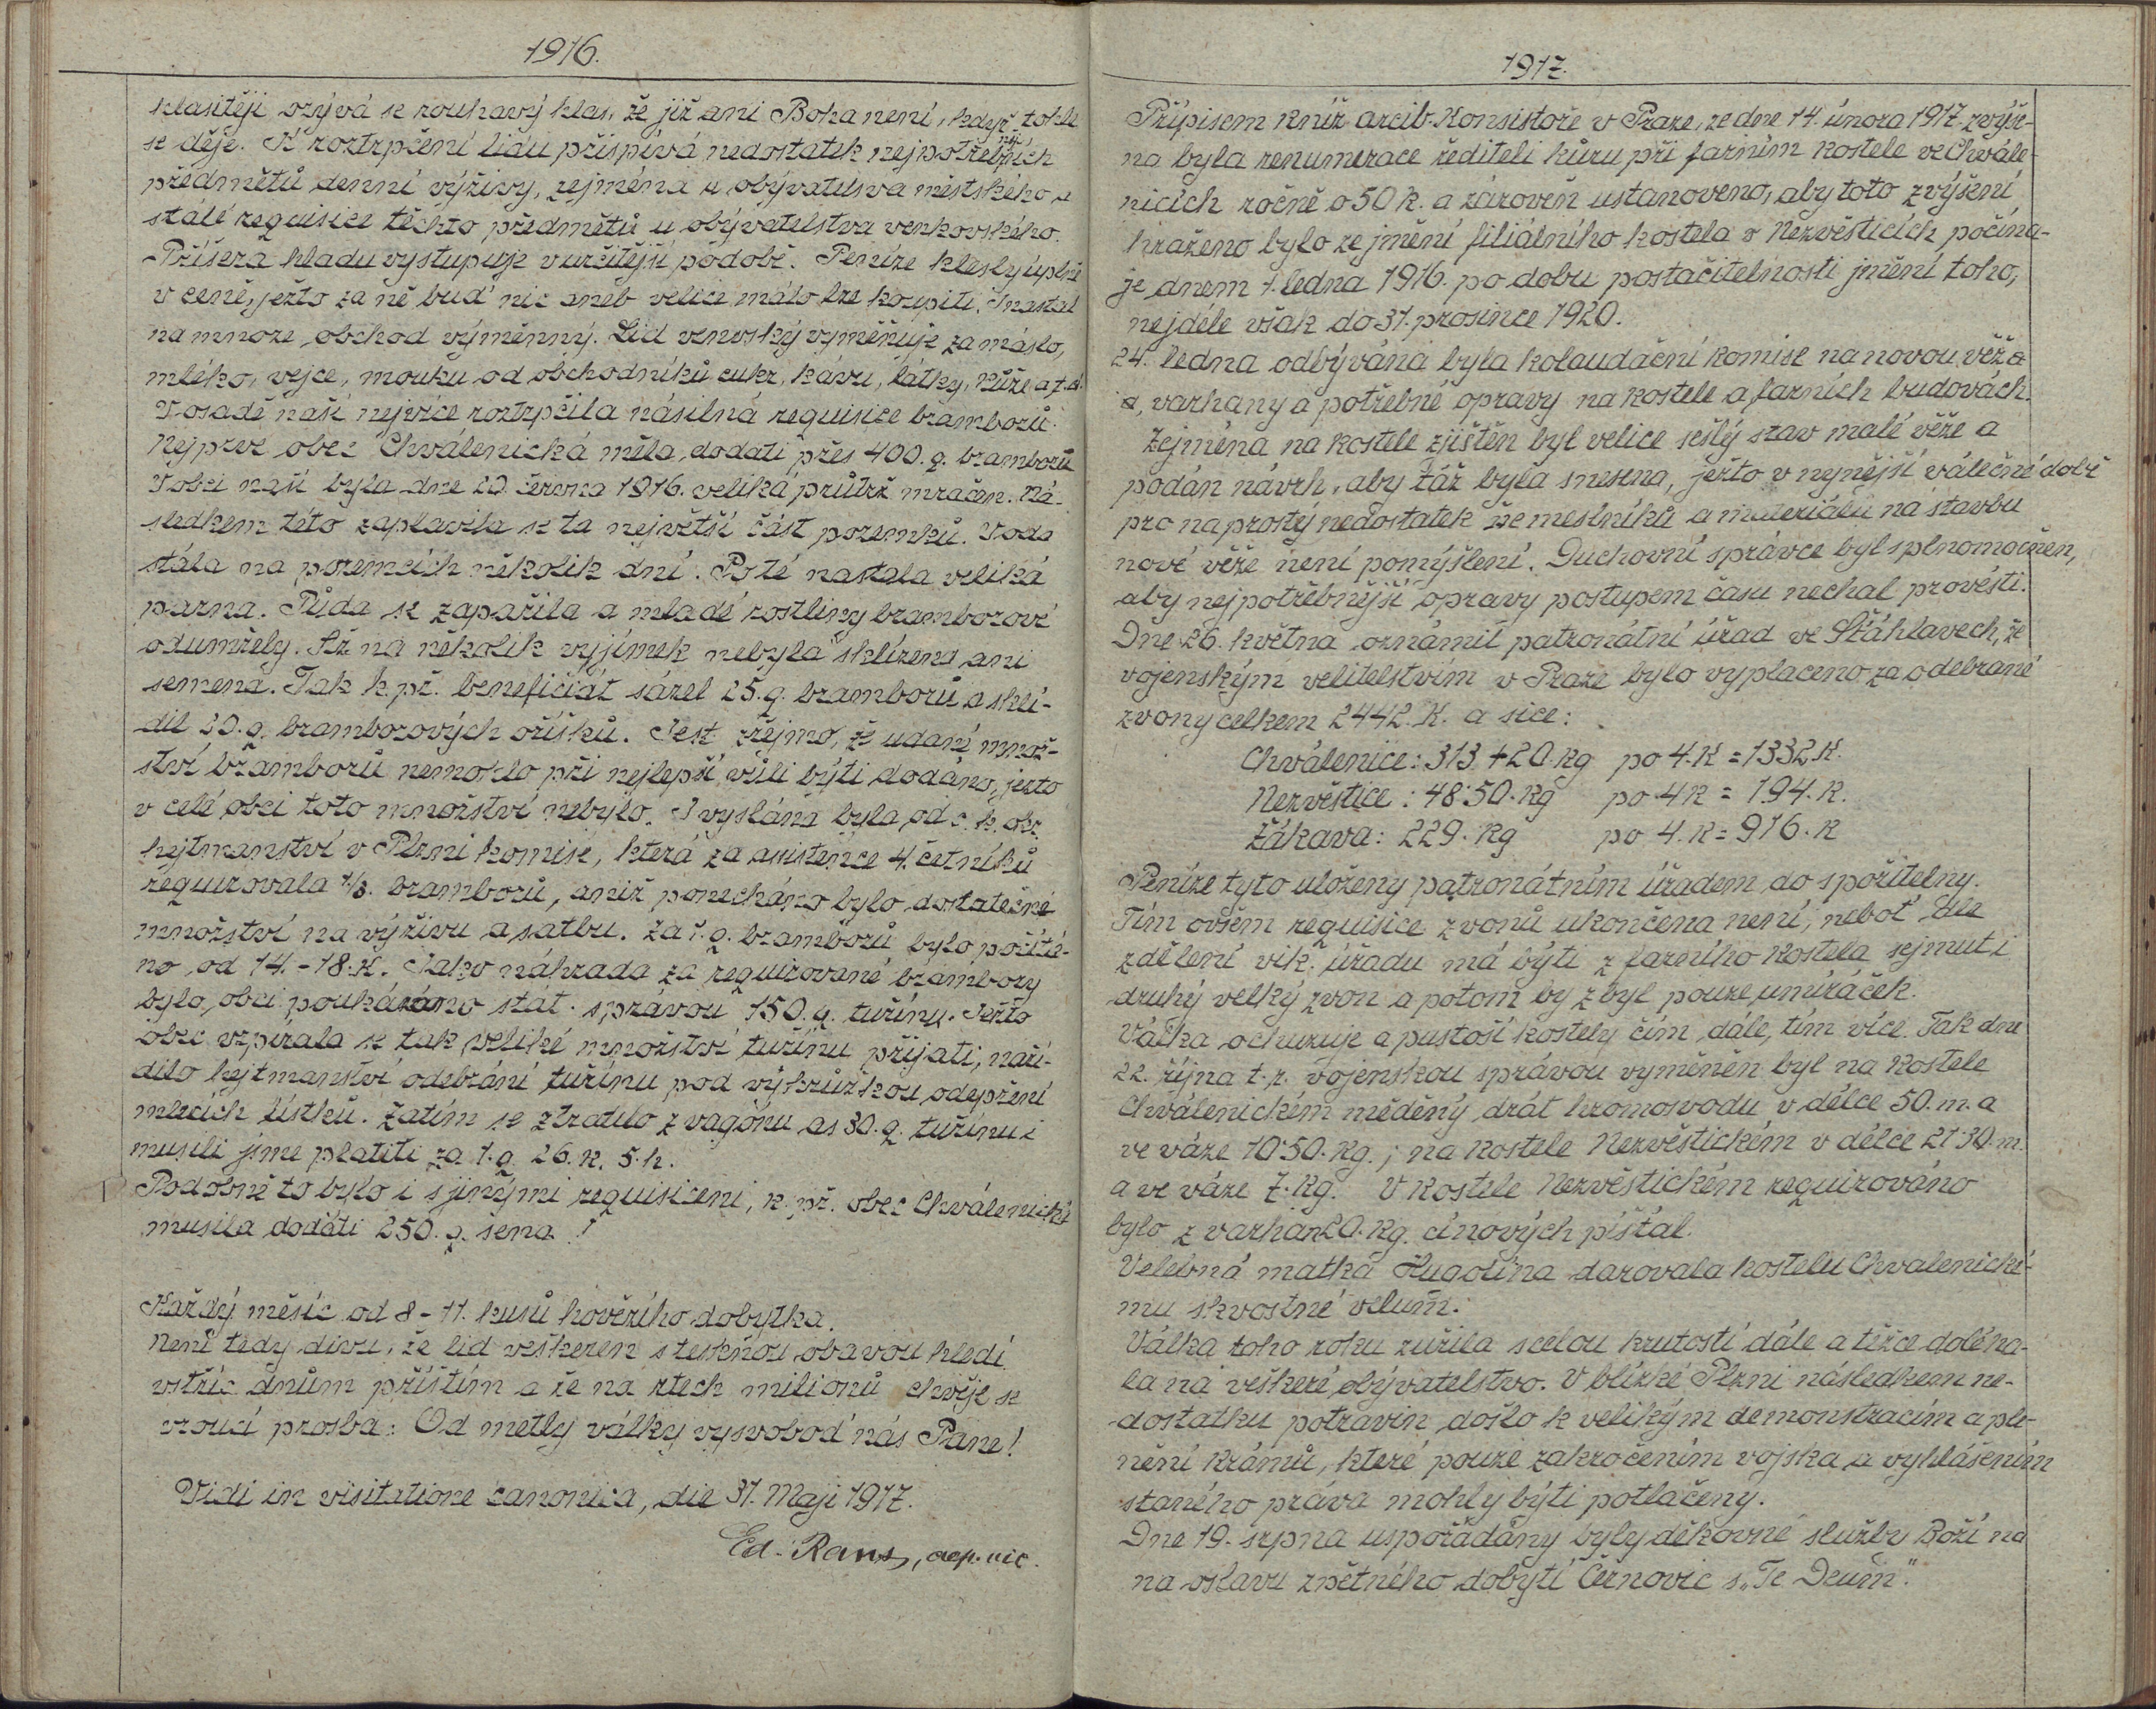 1916.
hlasitěji ozývá se rouhavý hlas, že již ani Boha není, když tohle
se děje. K roztrpčení lidu přispívá nedostatek nejpotřebnějších
předmětů denní výživy, zejména u obývatelswa městského a
stálé requisice těchto předmětů u obývatelstva venkovského.
Příšera hladu vystupuje v určitější podobě. Peníze klesly úplně
v ceně, ježto za ně buď nic aneb velice málo lze koupiti. I nastal
na mnoze obchod výměnný. Lid venvský vyměňuje za máslo,
mléko, vejce, mouku od obchodníků cukr, kávu, látky, kůže a t. d.
V osadě naší nejvíce roztrpčila násilná requisice bramborů.
Nejprve obec Chválenická měla dodati přes 400. q. bramborů
V obci naší byla dne 20. června 1916. veliká průtrž mračen. Ná-
sledkem této zaplavila se ta největší část pozemků. Voda
stála na pozemcích několik dní. Poté nastala veliká
parna. Půda se zapařila a mladé rostliny bramborové
odumřely. Až na několik vyjímek nebyla sklizena ani
semena. Tak k. př. beneficiát sázel 25. q. bramborů a skli-
dil 20. q. bramborových oříšků. Jest zřejmo, že udané množ-
ství bramborů nemohlo při nejlepší vůli býti dodáno, ježto
v celé obci toto množství nebylo. I vyslána byla od c. k. okr.
hejtmanství v Plzni komise, která za asistence 4. četníků
requirovala 1/3. bramborů, aniž ponecháno bylo dostatečné
množství na výživu a satbu. Za 1. q. bramborů bylo počítá-
no od 14. - 18. K. Jako náhrada za requirované brambory
bylo obci poukázáno stát. správou 150. q. tuřínu. Ježto
obec vzpírala se tak veliké množství tuřínu přijati, naří-
dilo hejtmanství odebrání tuřínu pod výhrůžkou odepření
mlecích lístků. Zatím se ztratilo z vagónu as 30. q. tuřínu i
musili jsme platiti za 1. q. 26. K. 5. h.
Podobně to bylo i s jinými requisicemi, k. př. obec Chválenická
musila dodati 250. q. sena !
Každý měsíc od 8 - 11. kusů hovězího dobytka.
Není tedy divu, že lid veškeren s tesknou obavou hledí
vstříc dnům příštím a že na rtech milionů chvěje se
vroucí prosba: Od metly války vysvoboď nás Pane!
Vidi in visitatione canonica, die 31. Maji 1917.
Ed. Rans, aep. vic.
1917.
Přípisem kníž. arcib. Konsistoře v Praze, ze dne 14. února 1917. zvýše-
na byla renumerace řediteli kůru při farním kostele ve Chvále-
nicích ročně o 50 K. a zároveň ustanoveno, aby toto zvýšení
hraženo bylo ze jmění filiálního kostela v Nezvěsticích počína-
je dnem 1. ledna 1916. po dobu postačitelnosti jmění toho,
nejdéle však do 31. prosince 1920.
24. ledna odbývána byla kolaudační komise na novou věž a
a, varhany a potřebné opravy na kostele a farních budovách.
Zejména na kostele zjištěn byl velice sešlý stav malé věže a
podán návrh, aby táž byla snesena, ježto v nynější válečné době
pro naprostý nedostatek řemeslníků a materiálu na stavbu
nové věže není pomýšlení. Duchovní správce byl splnomocněn,
aby nejpotřebnější opravy postupem času nechal provésti.
Dne 26. května oznámil patronátní úřad ve Šťáhlavech, že
vojenským velitelstvím v Praze bylo vyplaceno za odebrané
zvony celkem 2442. K. a sice:
Chválenice: 313 + 20. kg po 4. K = 1332 K.
Nezvěstice: 48·50. kg po 4 K = 194. K.
Žákava: 229. kg po 4. K = 916. K
Peníze tyto uloženy patronátním úřadem do spořitelny.
Tím ovšem requisice zvonů ukončena není, neboť dle
zdělení vik. úřadu má býti z farního kostela sejmut i
druhý velký zvon a potom by zbyl pouze umíráček.
Válka ochuzuje a pustoší kostely čím dále, tím více. Tak dne
22. října t. r. vojenskou správou vyměněn byl na kostele
Chválenickém měděný drát hromosvodu v délce 50. m. a
ve váze 10·50. kg.; na kostele Nezvěstickém v délce 21·30. m.
a ve váze 7. kg. V kostele Nezvěstickém requirováno
bylo z varhan 20. kg. cínových píšťal.
Velebná matka Hugolina darovala kostelu Chvalenické-
mu skvostné velum.
Válka toho roku zuřila s celou krutostí dále a těžce doléha-
la na veškeré obývatelstvo. V blízké Plzni následkem ne-
dostatku potravin došlo k velikým demonstracím a ple-
nění krámů, které pouze zakročením vojska a vyhlášením
staného práva mohly býti potlačeny.
Dne 19. srpna uspořádány byly děkovné služby Boží na
na oslavu zpětného dobytí Černovic s „Te Deum".